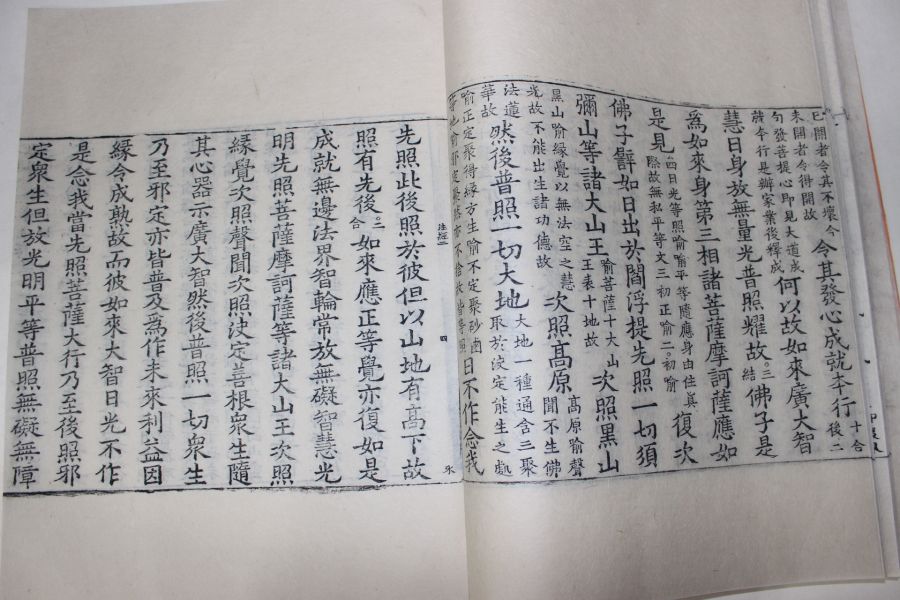 已開者令其不壞今
未開者令得開故
令其發心成就本行
後二
十合
句發菩提心即見大道成
就本行是辦家業後釋成
何以故如來廣大智
慧日身放無量光普照耀故
三
結
佛子是
為如來身第三相諸菩薩摩訶薩應如
是見
四日光等照喻喻平等隨應身由住真
際故無私平等文三初正喻二初喻
復次
佛子譬如日出於閻浮提先照一切須
彌山等諸大山王
喻菩薩十大山
王表十地故
次照黑山
黑山喻緣覺以無法空之慧
光故不能出生諸功德故
次照高原
高原喻聲
聞不生佛
法蓮
華故
然後普照一切大地
大地一種通含三聚
取於決定能生之處
喻正定聚得緣方生喻不定聚砂鹵
等地喻邪定聚然亦不捨故皆等照
日不作念我
先照此後照於彼但以山地有高下故
照有先後
三
合
如來應正等覺亦復如是
成就無邊法界智輪常放無礙智慧光
明先照菩薩摩訶薩等諸大山王次照
緣覺次照聲聞次照決定善根眾生隨
其心器示廣大智然後普照一切眾生
乃至邪定亦皆普及為作未來利益因
緣令成熟故而彼如來大智日光不作
是念我當先照菩薩大行乃至後照邪
定眾生但放光明平等普照無礙無障
四